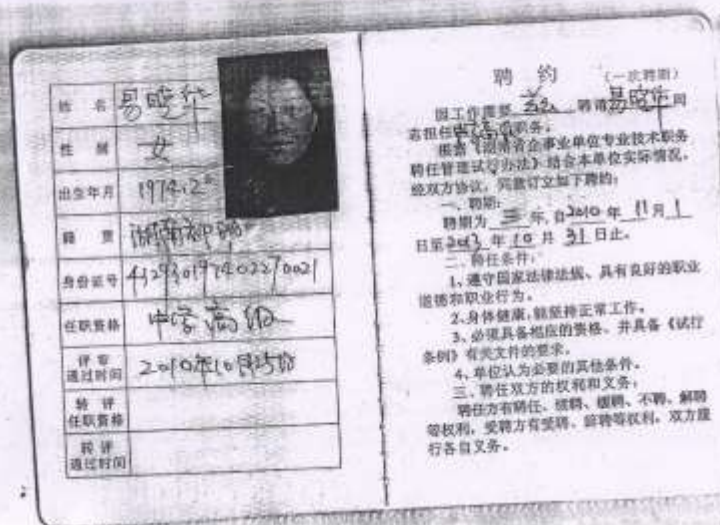 姓 名 易晓华
性 别 女
出生年月 1974.2
籍 贯 湖南
身份证号 432930197402270021
任职资格 中学高级
评审通过时间 2010年10月25日
转评任职资格
转评通过时间
聘 约 (一次聘期)
因工作需要 聘请易晓华同
志担任中学高级职务。
根据《湖南省企事业单位专业技术职务
聘任管理试行办法》结合本单位实际情况,
经双方协议,同意订立如下聘约:
一、聘期:
聘期为 三 年,自2010 年 11 月 1
日至2013 年 10 月 31 日止。
二、聘任条件:
1、遵守国家法律法规、具有良好的职业
道德和职业行为。
2、身体健康,能坚持正常工作。
3、必须具备相应的资格、并具备《试行
条例》有关文件的要求。
4、单位认为必要的其他条件。
三、聘任双方的权利和义务:
聘任方有聘任、续聘、缓聘、不聘、解聘
等权利,受聘方有受聘、辞聘等权利,双方履
行各自义务。